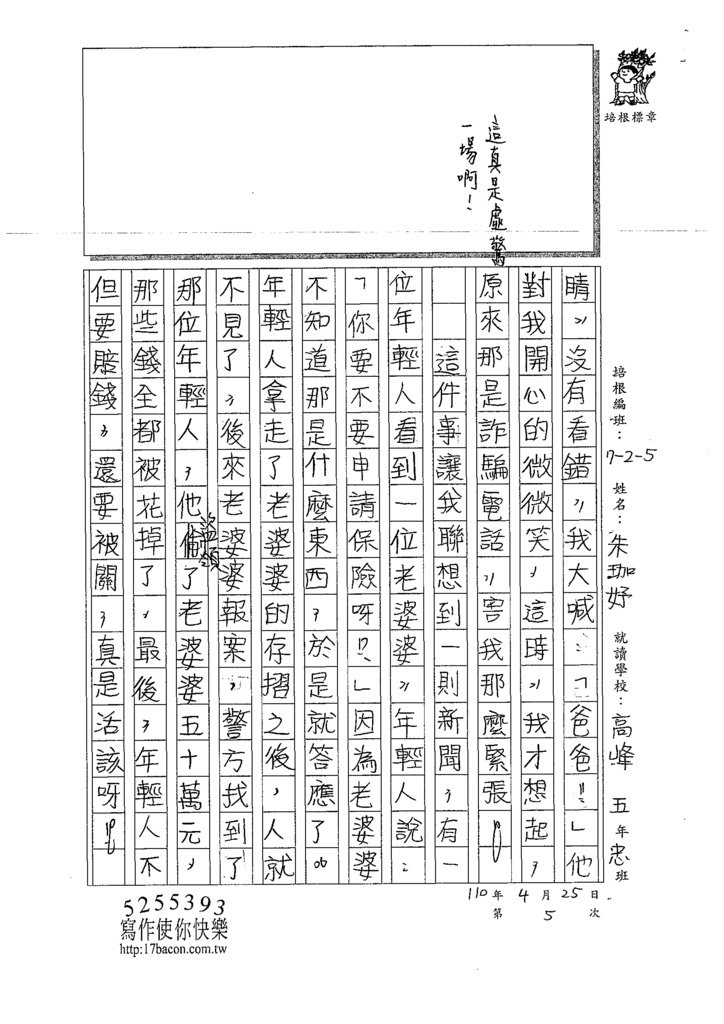 培根標章
這真是虛驚
一場啊！
培根編班：7-2-5 姓名：朱珈妤 就讀學校：高峰 五年忠班
110年4月25日
第5次
睛，沒有看錯，我大喊：「爸爸！」他
對我開心的微微笑，這時，我才想起，
原來那是詐騙電話，害我那麼緊張！
這件事讓我聯想到一則新聞，有一
位年輕人看到一位老婆婆，年輕人說：
「你要不要申請保險呀！?」因為老婆婆
不知道那是什麼東西，於是就答應了。
年輕人拿走了老婆婆的存摺之後，人就
不見了，後來老婆婆報案，警方找到了
那位年輕人，他盜領了老婆婆五十萬元，
那些錢全都被花掉了，最後，年輕人不
但要賠錢，還要被關，真是活該呀！
5255393
寫作使你快樂
http:17bacon.com.tw